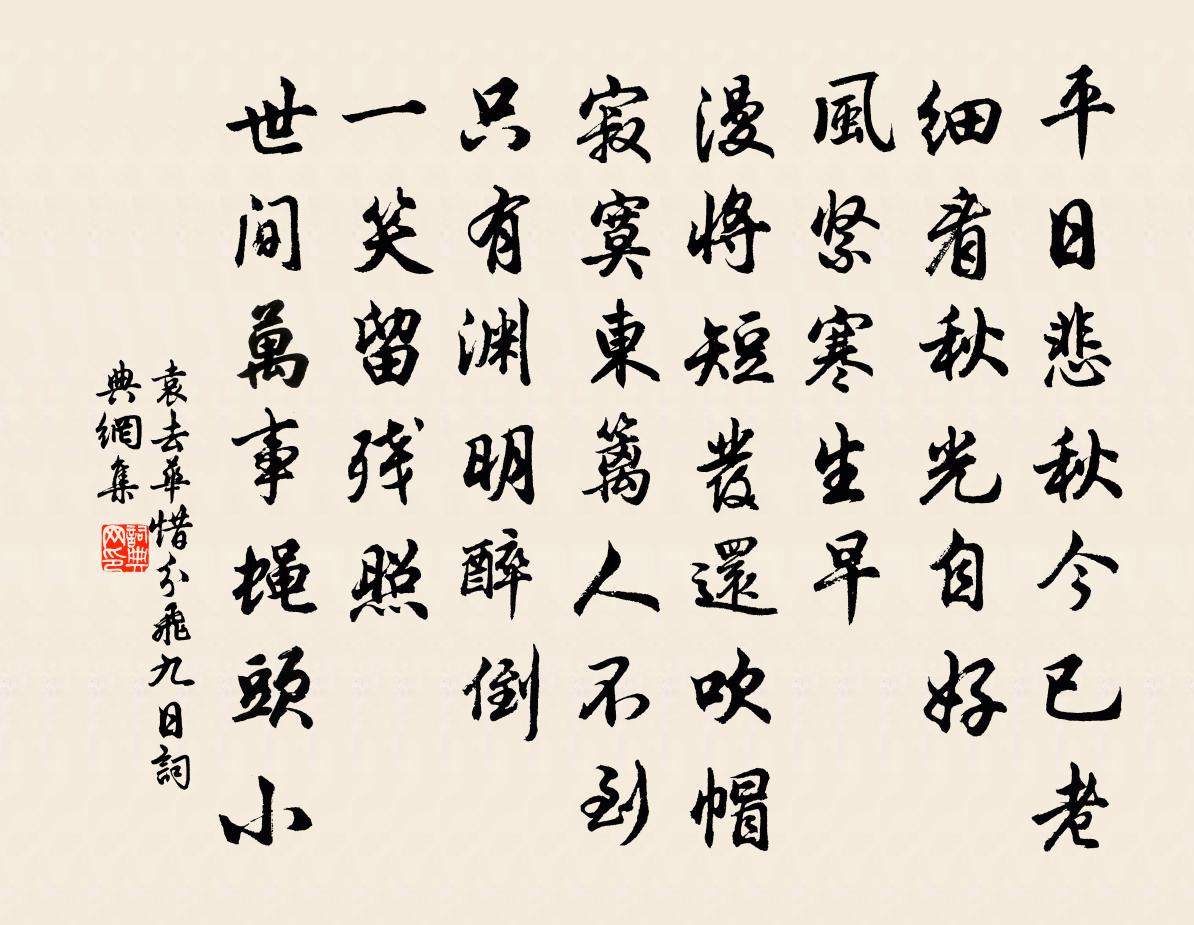 平日悲秋今已老
細看秋光自好
風緊寒生早
漫將短髮還吹帽
寂寞東籬人不到
只有渊明醉倒
一笑留残照
世间萬事蝇頭小
袁去華惜分飛九日詞
典網集
詞典
网印